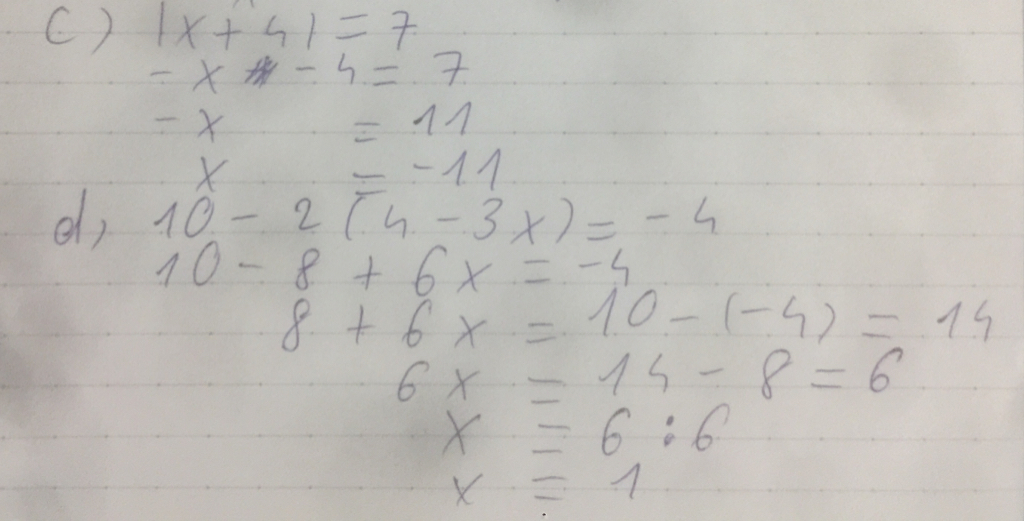 c) |x + 4| = 7
- x - 4 = 7
- x = 11
x = -11
d, 10 - 2 (4 - 3x) = - 4
10 - 8 + 6x = -4
8 + 6x = 10 - (-4) = 14
6x = 14 - 8 = 6
x = 6 : 6
x = 1